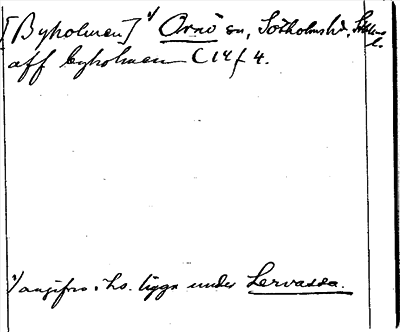 [Byholmen] 1/ Arnö sn, Sotholms hd, Sthlms l.
aff byholmen C 14 f 4.
1/ angifves i hs. ligga under Lervassa.